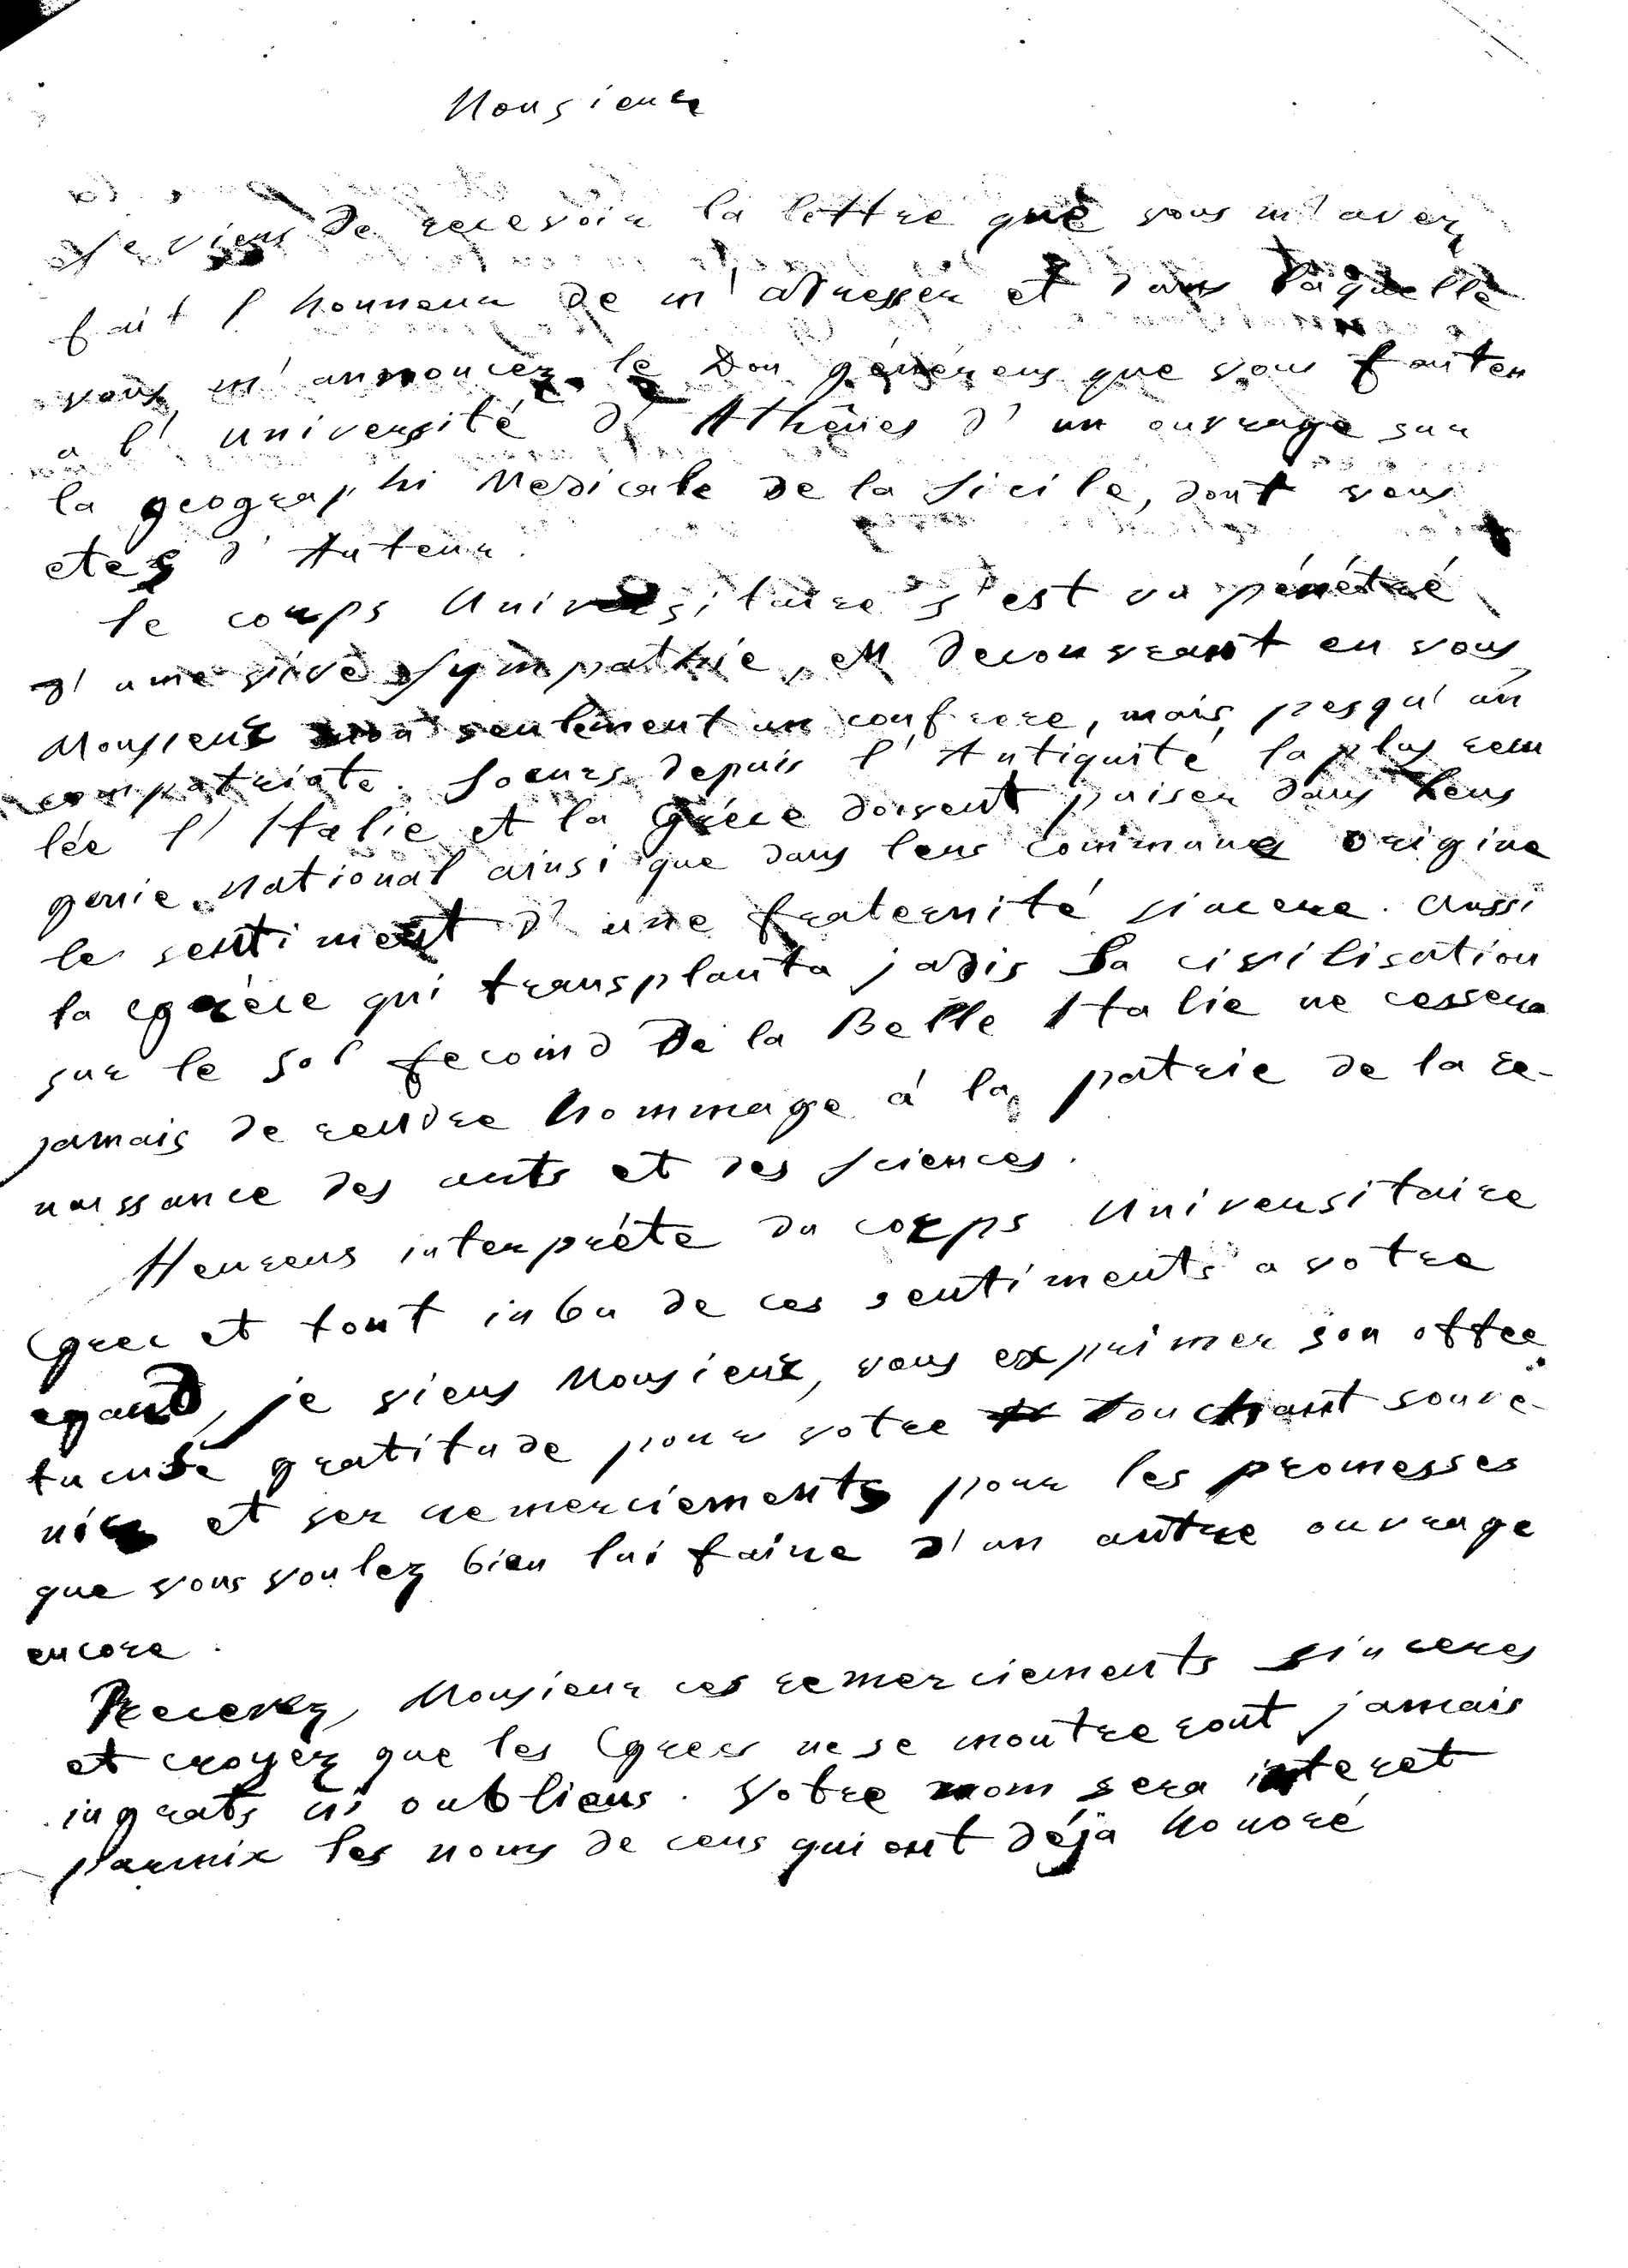 Monsieur
Je viens de recevoir la lettre que vous m'avez
fait l'honneur de m'adresser et dans laquelle
vous m'annoncez le Don généreus que vous faiten
a l'université d'Athênes d'un ouvrage sur
la geographi Medicale de la Sicile, dont vous
etes d'Auteur.
Le corps Universitaire s'est vu pénétré
d'une vive Sympathie, en decouvrant en vous,
Monsieur non seulement un confrere, mais, pesqu'un
compatriote. Soeurs depuis l'Antiquité la plus recu
lée l'Italie et la Gréce doivent puiser dans leus
genie National ainsi que dans leus commune origine
le sentiment d'une fraternité sincere. Aussi
la Grèce qui transplanta jadis sa civilisation
sur le sol fecond De la Belle Italie ne cessera
jamais de rendre hommage à la patrie de la re-
naissance des arts et des sciences.
Heureus interpréte du corps Universitaire
Grec et tout inbu de ces sentiments a votre
egard, je viens Monsieur, vous exprimer son affec
tueuse gratitude pour votre touchant souve-
nir et ser remerciements pour les promesses
que vous voulez bien lui faire d'un autre ouvrage
encore.
Recevez, Monsieur ces remerciements sinceres
et croyez que les Grecs ne se montreront jamais
ingrats ni oublieus. Votre nom sera interet
parmix les noms de ceus qui ont déjà honoré